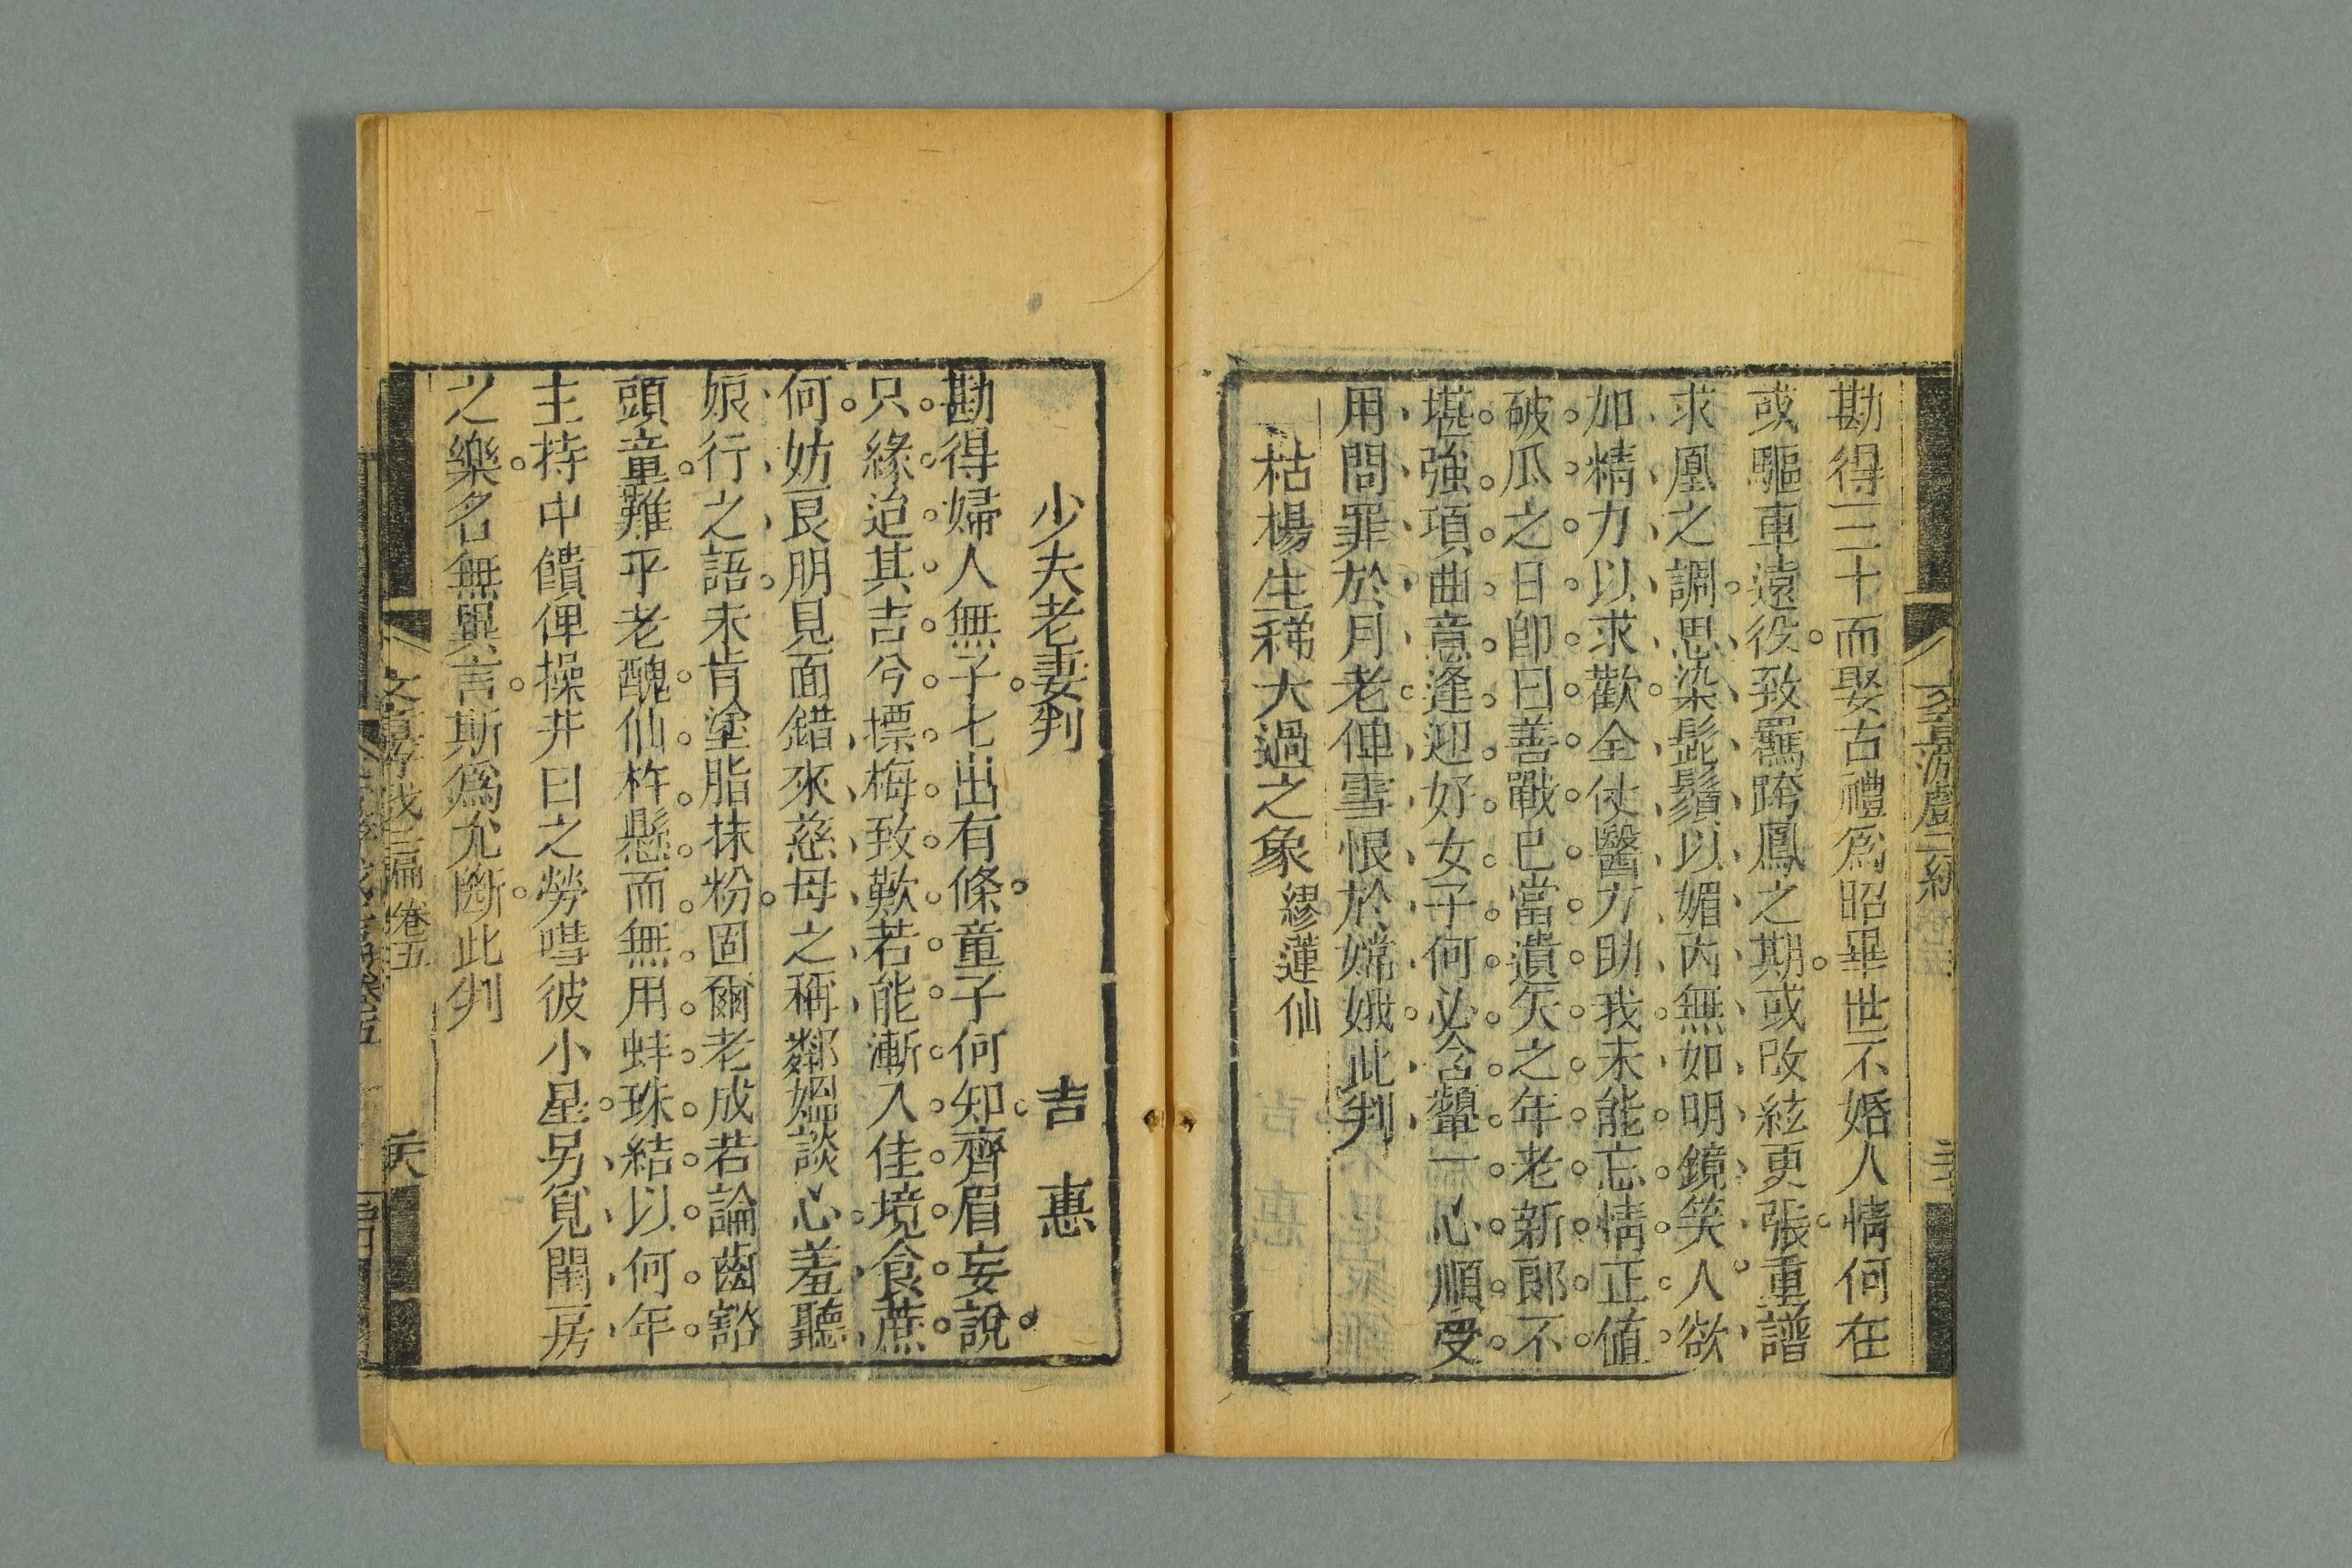 勘得三十而娶古禮爲昭畢世不婚人情何在
或驅車遠役致羈跨鳳之期或改絃更張重譜
求凰之調思染髭鬚以媚內無如明鏡笑人欲
加精力以求歡全仗醫方助我未能忘情正值
破瓜之日卽曰善戰已當遺矢之年老新郞不
堪強項曲意逢迎好女子何必含顰一心順受
用問罪於月老俾雪恨於嫦娥此判
枯楊生稊大過之象繆蓮仙
少夫老妻判 吉惠
勘得婦人無子七出有條童子何知齊眉妄說
只緣迨其吉兮摽梅致歎若能漸入佳境食蔗
何妨良朋見面錯來慈母之稱鄰媼談心羞聽
娘行之語未肯塗脂抹粉固爾老成若論齒豁
頭童難乎老醜仙杵懸而無用蚌珠結以何年
主持中饋俾操井臼之勞嘒彼小星另覓閨房
之樂名無異言斯爲允斷此判
文章游戲三編 卷五 天